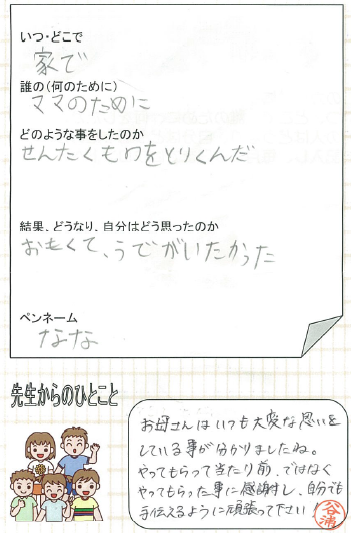 いつ・どこで
家で
誰の(何のために)
ママのために
どのような事をしたのか
せんたくものをとりくんだ
結果、どうなり、自分はどう思ったのか
おもくて、うでがいたかった
ペンネーム
なな
先生からのひとこと
お母さんはいつも大変な思いを
している事が分かりましたね。
やってもらって当たり前、ではなく
やってもらった事に感謝し、自分でも
手伝えるように頑張って下さい
谷浦